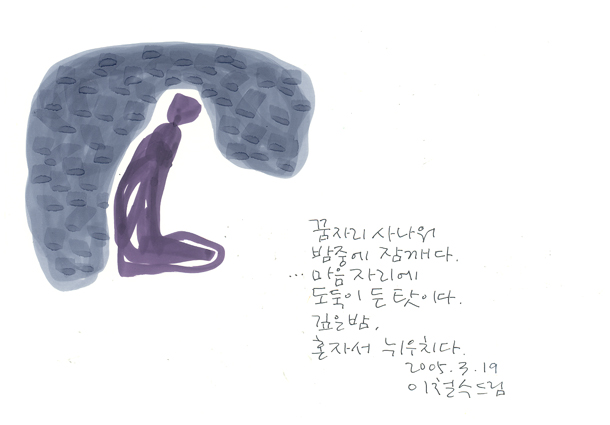 꿈자리 사나워
밤중에 잠깨다.
... 마음자리에
도둑이 든 탓이다.
깊은밤,
혼자서 뉘우치다.
2005.3.19
이철수드림